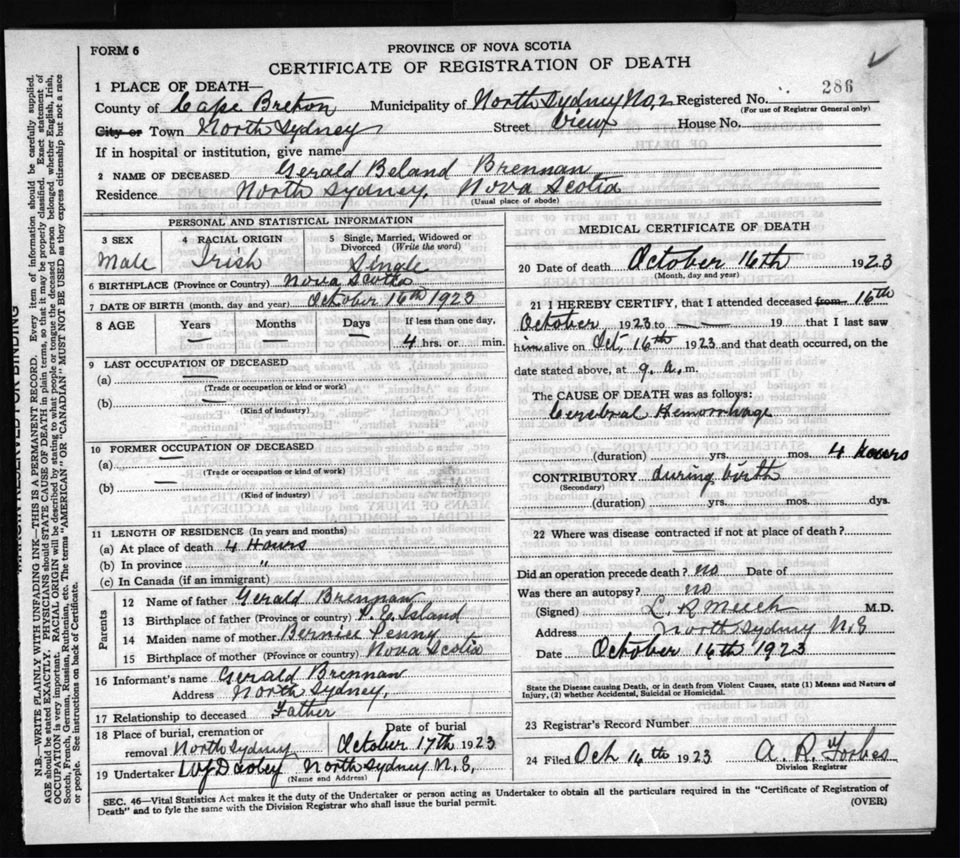 FORM 6
PROVINCE OF NOVA SCOTIA
CERTIFICATE OF REGISTRATION OF DEATH
286
1 PLACE OF DEATH—
County of Cape Breton Municipality of North Sydney No. 2 Registered No.
(For use of Registrar General only)
City or Town North Sydney Street View House No.
If in hospital or institution, give name
2 NAME OF DECEASED Gerald Beland Brennan
Residence North Sydney, Nova Scotia
(Usual place of abode)
PERSONAL AND STATISTICAL INFORMATION
3 SEX
Male
4 RACIAL ORIGIN
Irish
5 Single, Married, Widowed or Divorced (Write the word)
Single
6 BIRTHPLACE (Province or Country) Nova Scotia
7 DATE OF BIRTH (month, day and year) October 16th 1923
8 AGE Years Months Days If less than one day,
— — — 4 hrs. or min.
9 LAST OCCUPATION OF DECEASED
(a) —
(Trade or occupation or kind or work)
(b) —
(Kind of industry)
10 FORMER OCCUPATION OF DECEASED
(a) —
(Trade or occupation or kind of work)
(b) —
(Kind of industry)
11 LENGTH OF RESIDENCE (In years and months)
(a) At place of death 4 Hours
(b) In province "
(c) In Canada (if an immigrant)
Parents
12 Name of father Gerald Brennan
13 Birthplace of father (Province or country) P. E. Island
14 Maiden name of mother Bernice Penny
15 Birthplace of mother (Province or country) Nova Scotia
16 Informant's name Gerald Brennan
Address North Sydney,
17 Relationship to deceased Father
18 Place of burial, cremation or removal North Sydney
Date of burial
October 17th 1923
19 Undertaker North Sydney N. S.
(Name and Address)
MEDICAL CERTIFICATE OF DEATH
20 Date of death October 16th 1923
(Month, day and year)
21 I HEREBY CERTIFY, that I attended deceased from 16th
October, 1923 to — — 19 that I last saw
him alive on Oct, 16th 1923 and that death occurred, on the
date stated above, at 9. a. m.
The CAUSE OF DEATH was as follows:
Cerebral Hemorrhage
(duration) yrs. mos. 4 hours
CONTRIBUTORY during birth
(Secondary)
(duration) yrs. mos. dys.
22 Where was disease contracted if not at place of death?
—
Did an operation precede death? no Date of
Was there an autopsy? no
(Signed) M.D.
Address North Sydney N.S
Date October 16th 1923
State the Disease causing Death, or in death from Violent Causes, state (1) Means and Nature of
Injury, (2) whether Accidental, Suicidal or Homicidal.
23 Registrar's Record Number
24 Filed Oct 16th 1923 A. R. Forbes
Division Registrar
SEC. 46—Vital Statistics Act makes it the duty of the Undertaker or person acting as Undertaker to obtain all the particulars required in the "Certificate of Registration of
Death" and to fyle the same with the Division Registrar who shall issue the burial permit.
(OVER)
MARGIN RESERVED FOR BINDING
N.B.—WRITE PLAINLY WITH UNFADING INK—THIS IS A PERMANENT RECORD. Every item of information should be carefully supplied.
AGE should be stated EXACTLY. PHYSICIANS should STATE CAUSE OF DEATH in plain terms, so that it may be properly classified. Exact statement of
OCCUPATION is very important. RACIAL ORIGIN will be described by stating to what people or tongue the deceased person belonged whether English, Irish,
Scotch, French, German, Russian, Ruthenian, etc. The terms "AMERICAN" OR "CANADIAN" MUST NOT BE USED as they express citizenship but not a race
or people. See instructions on back of Certificate.